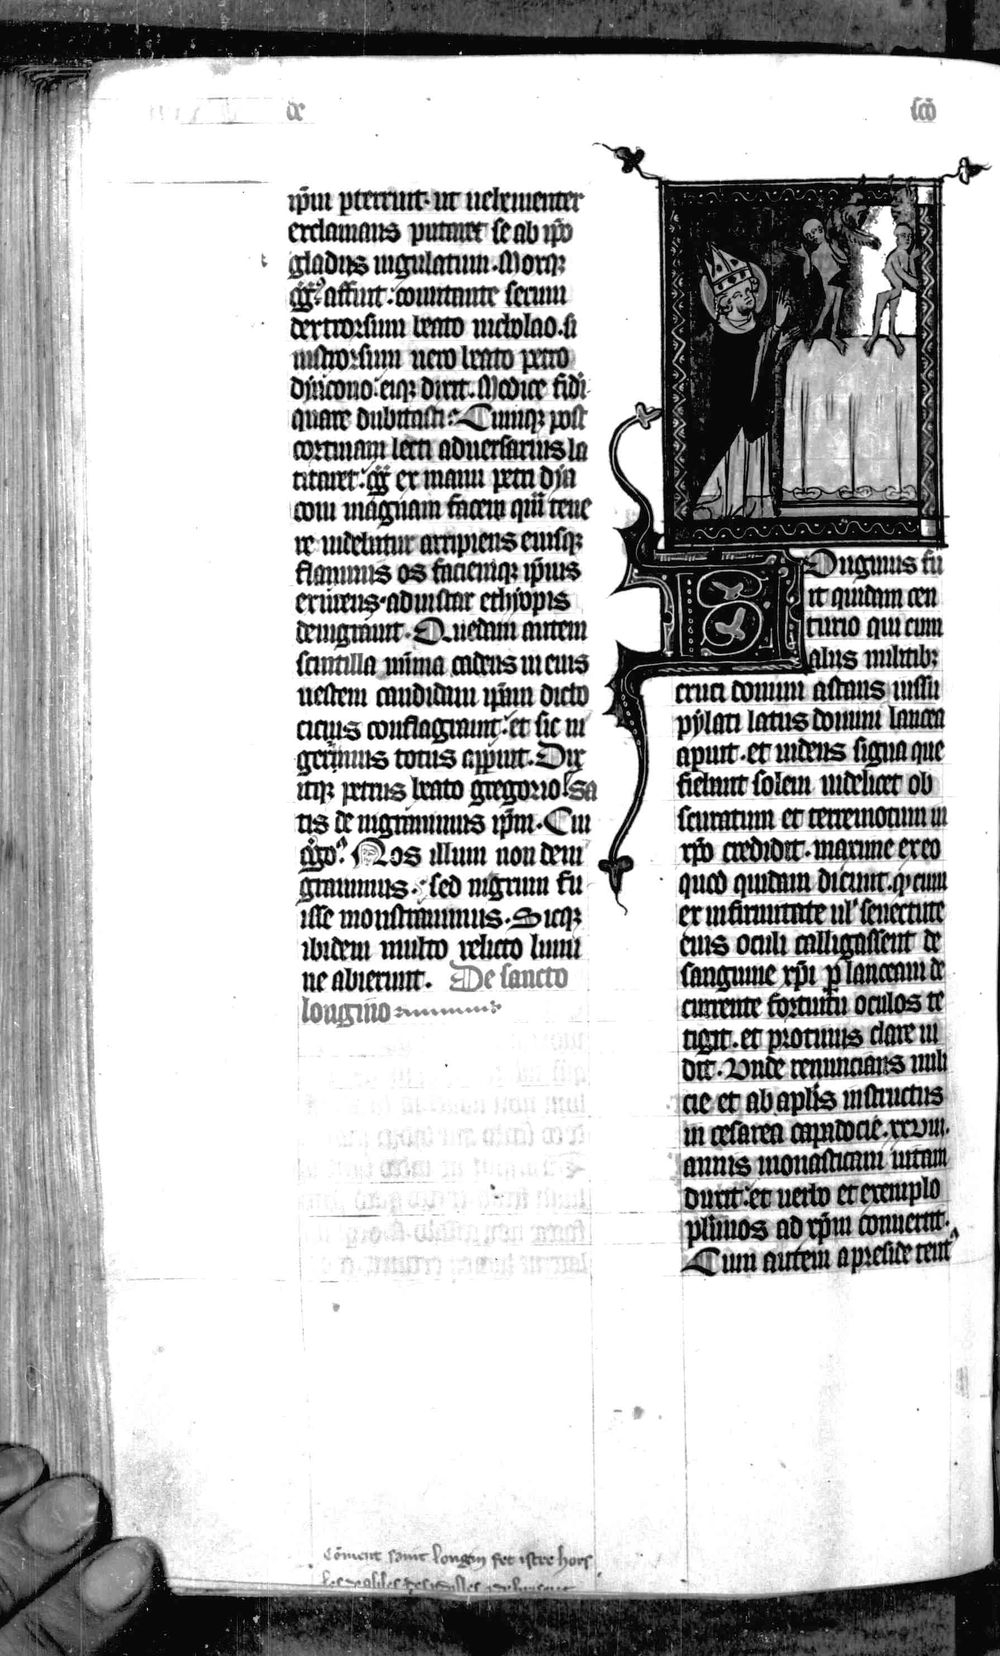 de
scō
ip̄m pterruit. ut uehementer
exclamans putaret se ab ip̄o
gladiis iugulatum. Moxq;
gg̃ affuit. comitante secum
dextrorsum beato nicholao. si
nistrorsum uero beato petro
dyacono. eiq; dixit. Modice fidei
quare dubitasti. Cumq; post
cortinam lecti aduersarius la
titaret. gg̃ ex manu petri dya
coni magnam facem quā tene
re uidebatur arripiens eiusq;
flammis os faciemq; ipius
exurens. ad instar ethyopis
denigrauit. Quedam autem
scintilla minima cadens in eius
uestem candidam ip̄am dicto
citius conflagrauit. et sic ni
gerrimus totus apparuit. Dix
itq; petrus beato gregorio Sa
tis denigrauimus ip̄m. Cui
Nos illum non deni
grauimus. sed nigrum fu
isse monstrauimus. Sicq;
ibidem multo relicto lumi
ne abierunt. De sancto
longino
Onginus fu
it quidam cen
turio qui cum
aliis militib;
cruci domini astans iussu
pylati latus domini lancea
apuit. et uidens signa que
fiebant solem uidelicet ob
scuratum et terremotum in
xp̄o credidit. maxime ex eo
quod quidam dicunt. q; cum
ex infirmitate ul' senectute
eius oculi calligassent de
sanguine xp̄i p lanceam de
currente fortuitu oculos te
tigit. et protinus clare ui
dit. Unde renuncians mili
cie et ab aplis instructus
in cesarea capadocie. xxviii.
annis monasticam uitam
duxit. et uerbo et exemplo
plimos ad xp̄m conuertit.
Cum autem a preside tent
Cōment saint longin fet istre hors